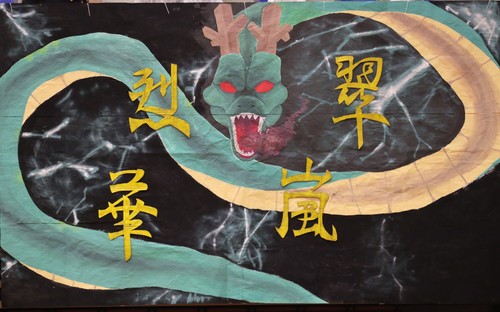 翠嵐
烈華